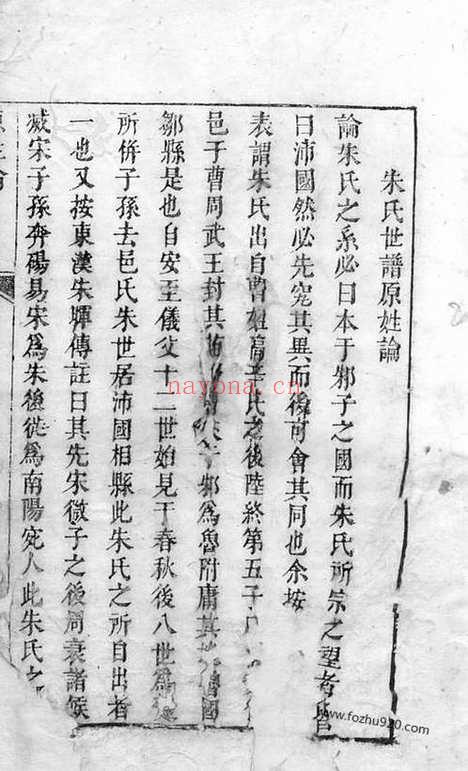 朱氏世譜原姓論
論朱氏之系必曰本于邾子之國而朱氏所宗之望者皆
曰沛國然必先究其異而後可會其同也余按
表謂朱氏出自曹姓高 氏之後陸終第五子
邑于曹周武王封其 于邾為魯附庸其 國
鄒縣是也自安至儀父十二世始見于春秋後八世為
所併子孫去邑氏朱世居沛國相縣此朱氏之所自出者
一也又按東漢朱暉傳註曰其先宋微子之後周衰諸侯
滅宋子孫奔碭易宋爲朱後徙爲南陽宛人此朱氏之
nayona.cn
www.fozhu920.com